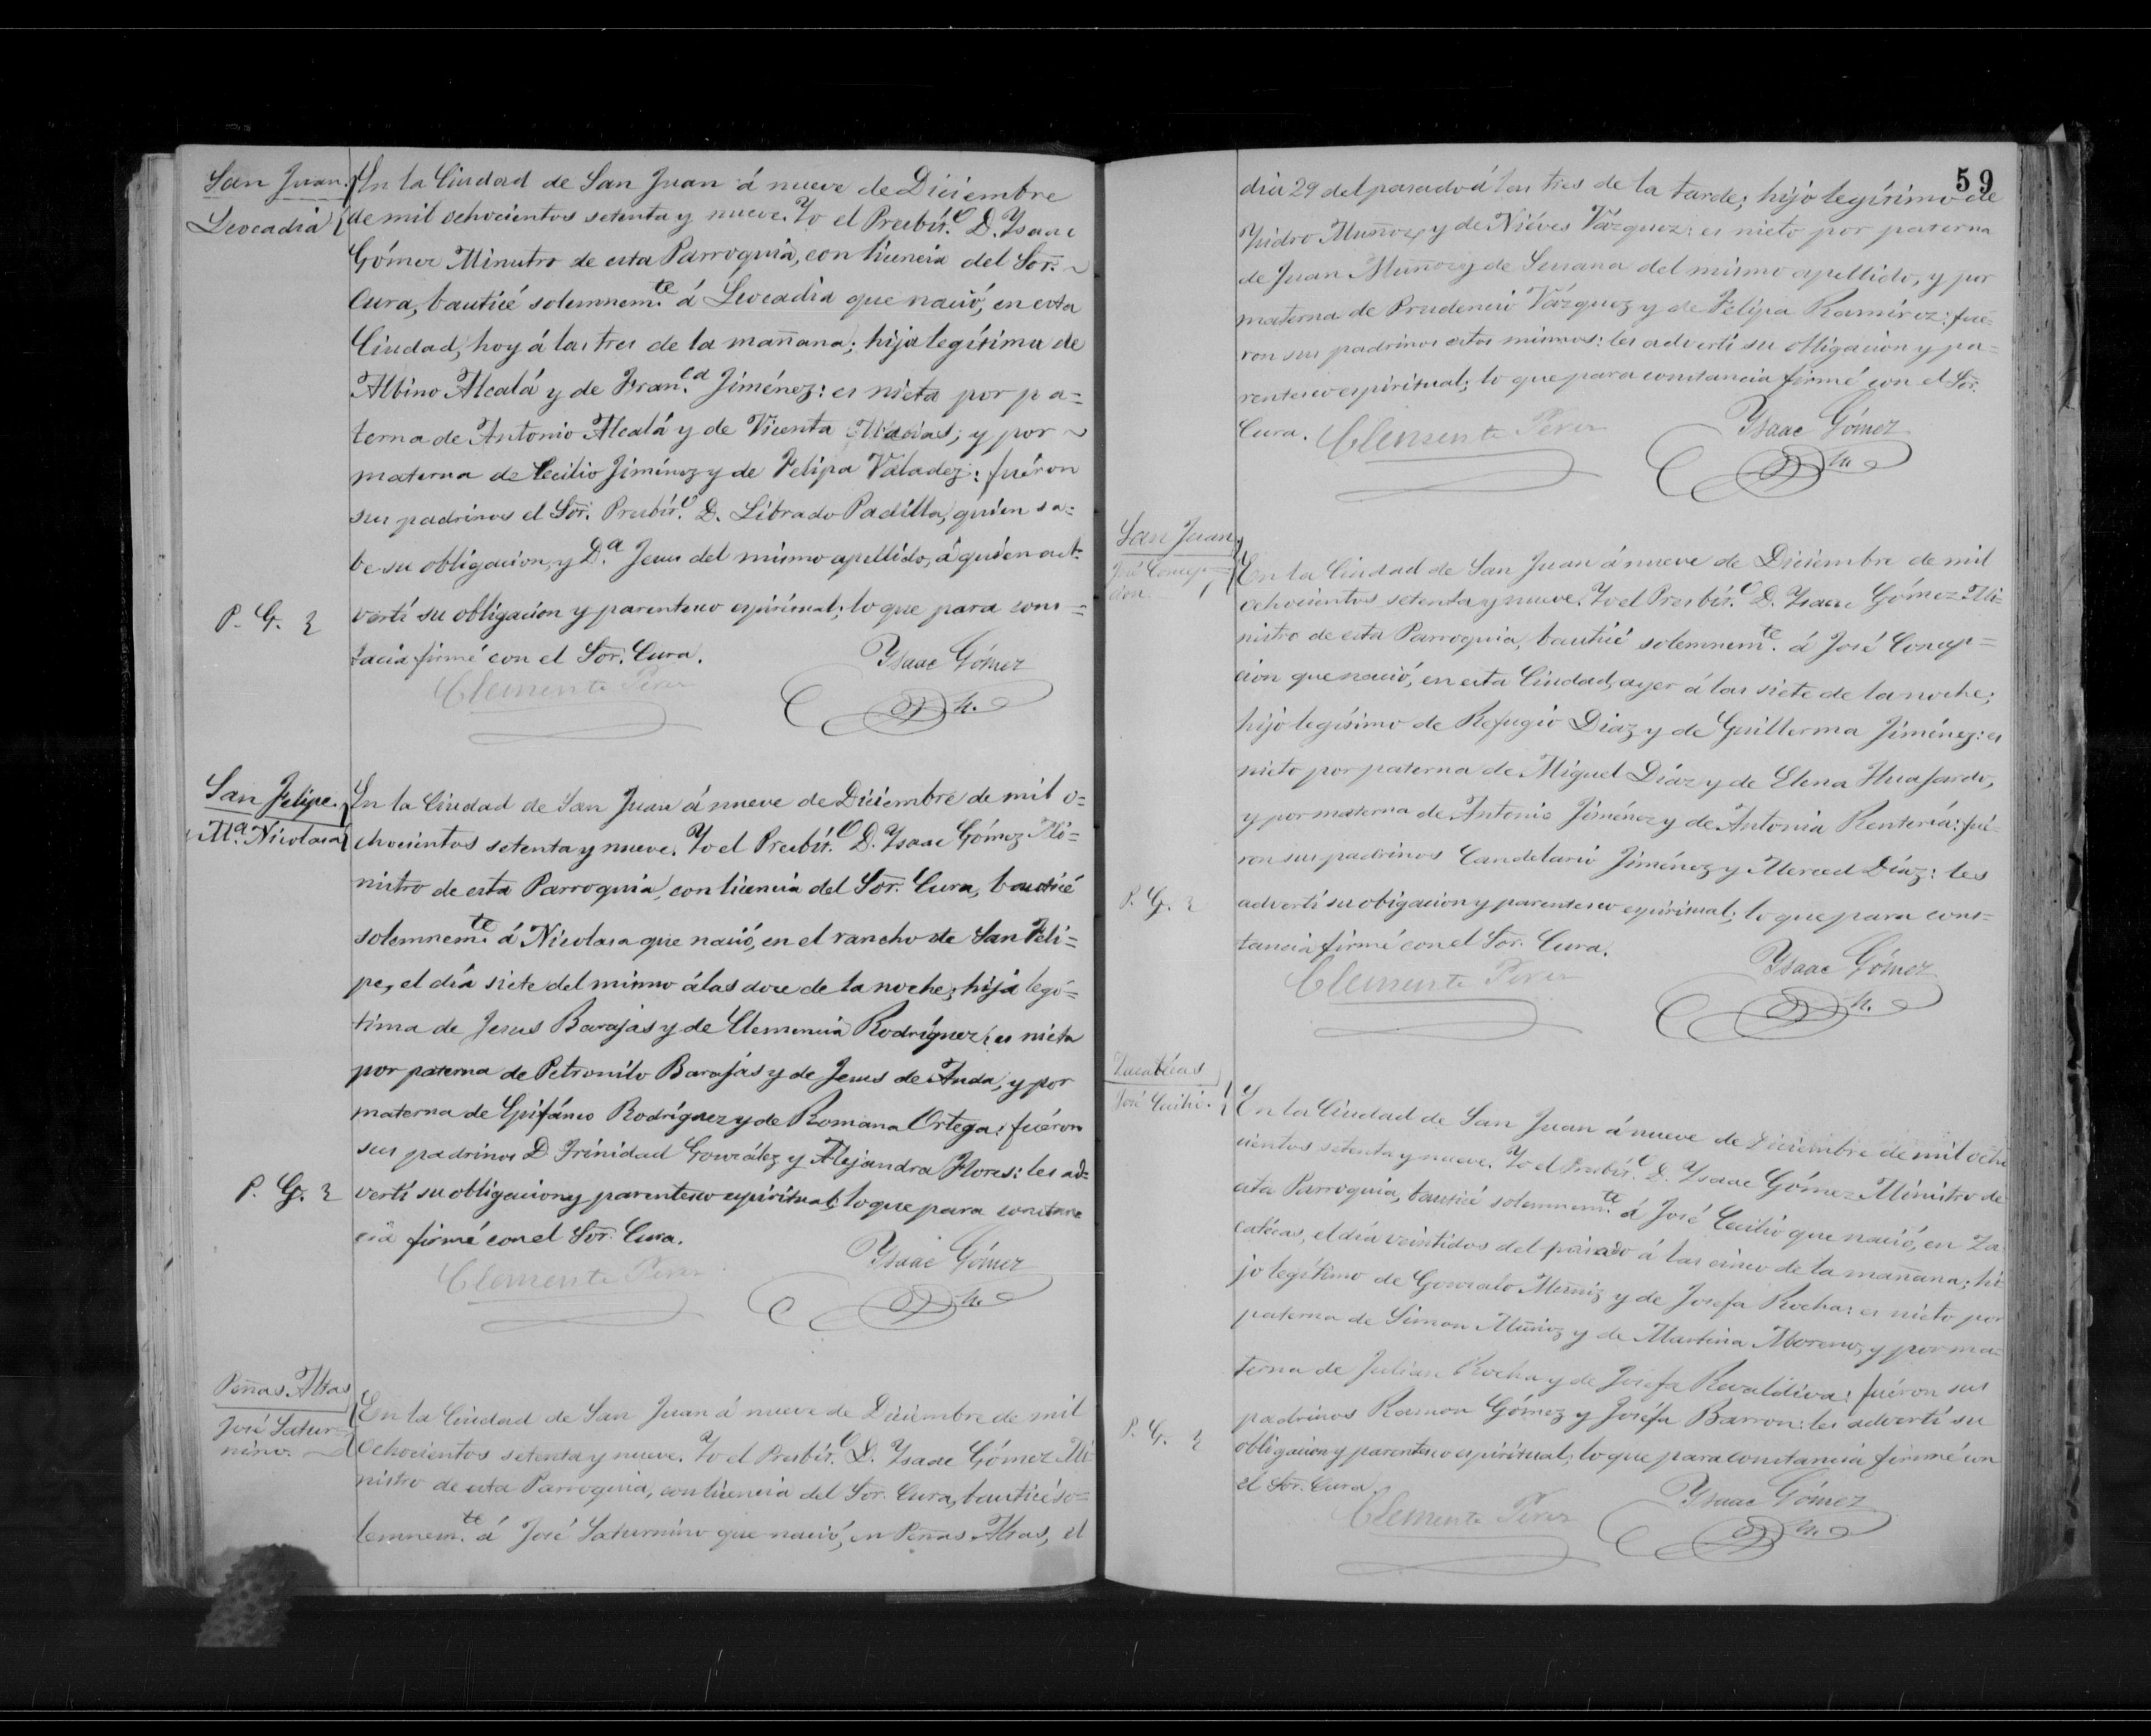 San Juan.
Leocadia
En la Ciudad de San Juan á nueve de Diciembre
de mil ochocientos setenta y nueve. Yo el Presbít.o D. Ysaac
Gómez Ministro de esta Parroquia, con licencia del Sor.
Cura, bauticé solemnem.te á Leocadia que nació, en esta
Ciudad, hoy á las tres de la mañana; hija legítima de
Albino Alcalá y de Fran.ca Jiménez: es nieta por pa=
terna de Antonio Alcalá y de Vicenta Macias; y por
materna de Cecilio Jiménez y de Felipa Valadez: fuéron
sus padrinos el Sor. Presbít.o D. Librado Padilla, quién sa=
be su obligacion, y D.a Jesus del mismo apellido, á quién ad-
vertí su obligacion y parentesco espiritual; lo que para cons=
P. G.
tacia firmé con el Sor. Cura.
Ysaac Gómez
Clemente Perez
San Felipe.
Ma. Nicolasa
En la Ciudad de San Juan á nueve de Diciembre de mil o=
chocientos setenta y nueve. Yo el Presbít.o D. Ysaac Gómez Mi=
nistro de esta Parroquia, con licencia del Sor. Cura, bauticé
solemnem.te á Nicolasa que nació, en el rancho de San Feli=
pe, el día siete del mismo á las doce de la noche; hija legí=
tima de Jesus Barajas y de Clemencia Rodríguez: es nieta
por paterna de Petronilo Barajas y de Jesus de Anda; y por
materna de Epifánio Rodríguez y de Romana Ortega: fuéron
sus padrinos D. Trinidad González y Alejandra Flores: les ad=
P. G.
vertí su obligacion y parentesco espiritual; lo que para constan
cia firmé con el Sor. Cura.
Ysaac Gómez
Clemente Perez
Peñas Altas
José Satur=
nino.
En la Ciudad de San Juan á nueve de Diciembre de mil
ochocientos setenta y nueve. Yo el Presbít.o D. Ysaac Gómez Mi
nistro de esta Parroquia, con licencia del Sor. Cura, bauticé so=
lemnem.te á José Saturnino que nació, en Peñas Altas, el
59
dia 29 del pasado á las tres de la tarde; hijo legítimo de
Ysidro Muñoz y de Niéves Vázquez: es nieto por paterna
de Juan Muñoz y de Susana del mismo apellido, y por
materna de Prudencio Vázquez y de Felipa Ramírez: fué=
ron sus padrinos estos mismos: les advertí su obligacion y pa=
rentesco espiritual; lo que para constancia firmé con el Sor.
Cura.
Clemente Perez
Ysaac Gómez
San Juan
José Concep=
cion.
En la Ciudad de San Juan á nueve de Diciembre de mil
ochocientos setenta y nueve. Yo el Presbít.o D. Ysaac Gómez Mi=
nistro de esta Parroquia, bauticé solemnem.te á José Concep=
cion que nació, en esta Ciudad, ayer á las siete de la noche;
hijo legítimo de Refugio Diaz y de Guillerma Jiménez: es
nieto por paterna de Miguel Díaz y de Elena Huajardo,
y por materna de Antonio Jiménez y de Antonia Rentería: fué=
ron sus padrinos Candelario Jiménez y Merced Díaz: les
P. G.
advertí su obigacion y parentesco espiritual; lo que para cons=
tancia firmé con el Sor. Cura.
Ysaac Gómez
Clemente Perez
Zacatécas
José Cecilio.
En la Ciudad de San Juan á nueve de Diciembre de mil ocho
cientos setenta y nueve. Yo el Presbít.o D. Ysaac Gómez Ministro de
esta Parroquia, bauticé solemnem.te á José Cecilio que nació, en Za
catécas, el día veintidos del pasado á las cinco de la mañana; hi
jo legítimo de Gonzalo Muñiz y de Josefa Rocha: es nieto por
paterna de Simon Muñiz y de Martina Moreno, y por ma=
terna de Julian Rocha y de Josefa Revaldiva: fuéron sus
padrinos Ramon Gómez y Joséfa Barron: les advertí su
P. G.
obligacion y parentesco espiritual; lo que para constancia firmé con
el Sor. Cura.
Ysaac Gómez
Clemente Perez